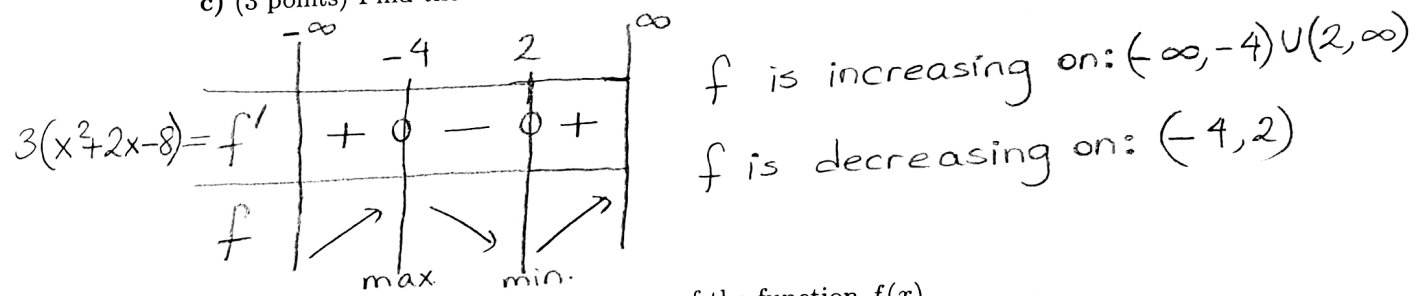 c) (3 points) Find the
-∞ -4 2 ∞
3(x²+2x-8)= f′ + 0 - 0 +
f ↗ ↘ ↗
max. min.
f is increasing on: (-∞,-4)∪(2,∞)
f is decreasing on: (-4,2)
of the function f(x)